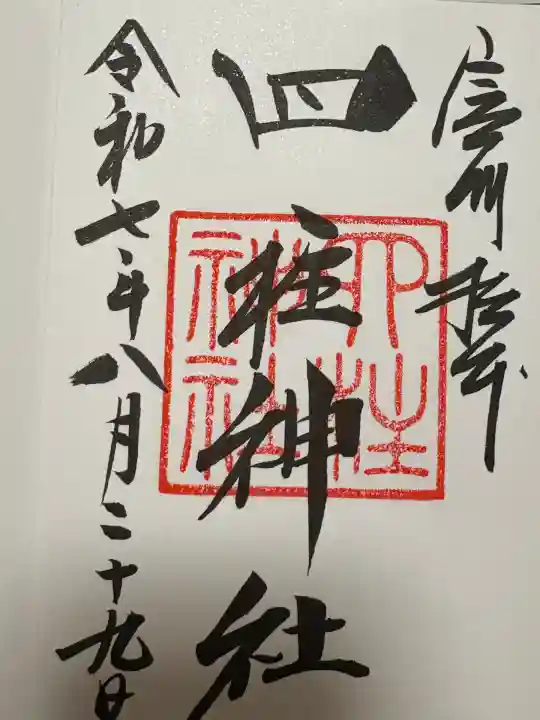 信州 松本
四柱神社
四柱
神社
令和七年八月二十九日